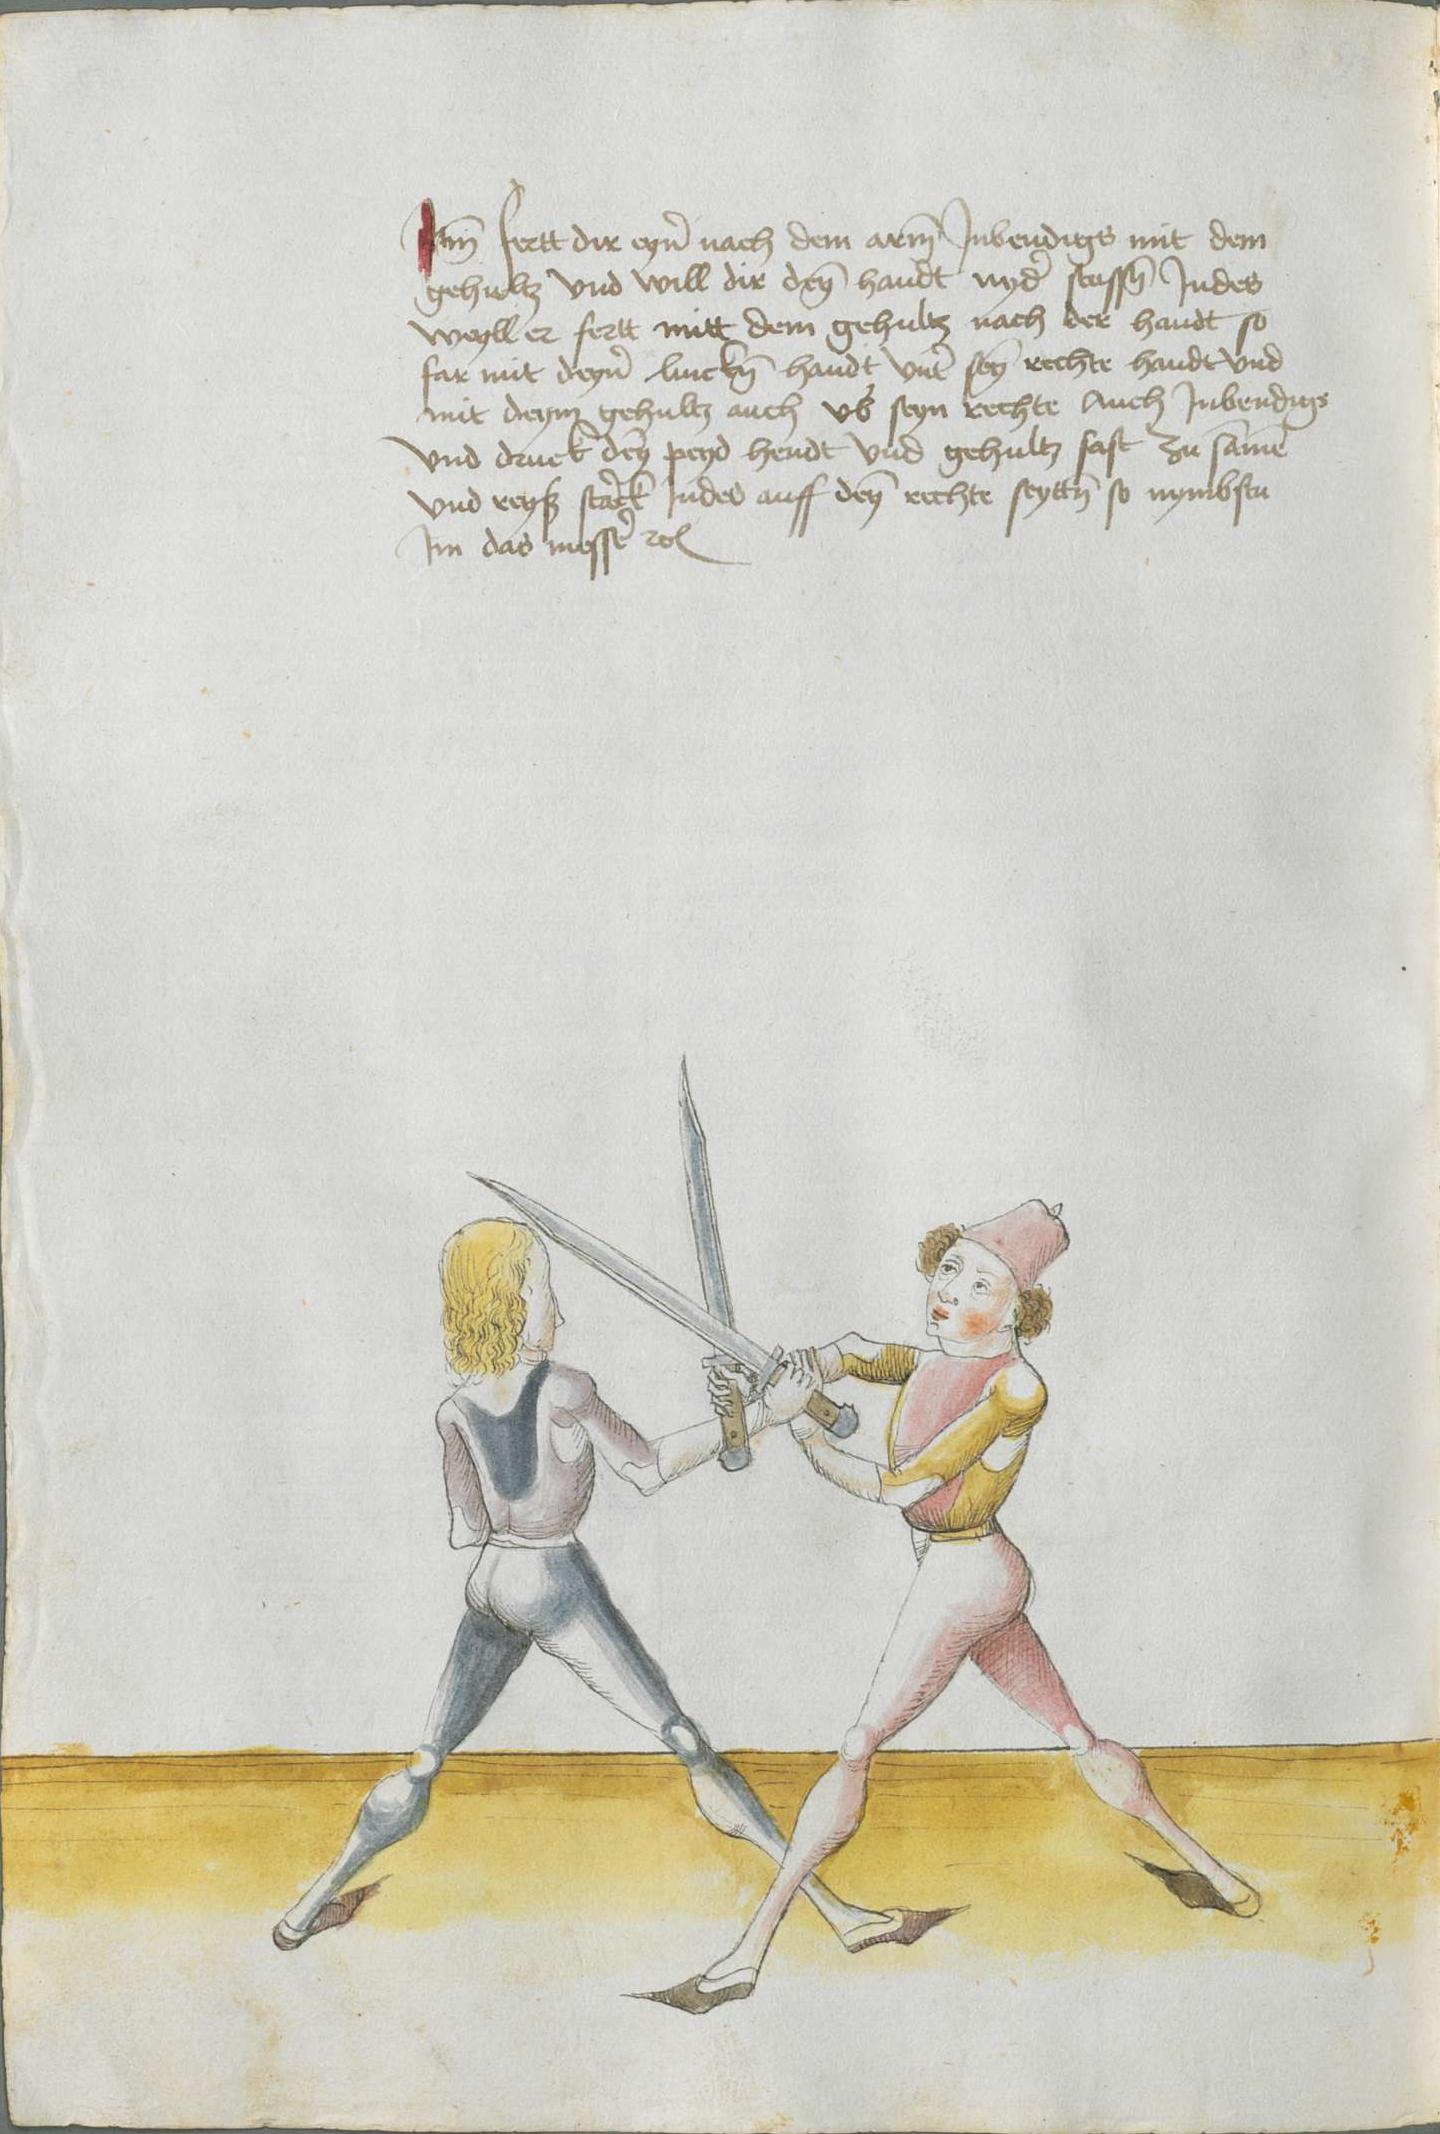 Itm̄ fertt dir eyn̄ nach dem arm̄ Inbendigs mit dem
gehultz vnd will dir deȳ handt nyd' stossn̄ Indes
weyll er fertt mitt dem gehultz nach der handt so
far mit deyn̄ linckn̄ handt vnt' seȳ rechte handt vnd
mit deym gehultz auch vb' seyn rechte Auch Inbendigs
vnd druck deȳ peyd hendt vnd gehultz fast zu sāmē
vnd reyß starck Indes auff deȳ rechte seyttn̄ so nymbstu
Im das messer̄ rc